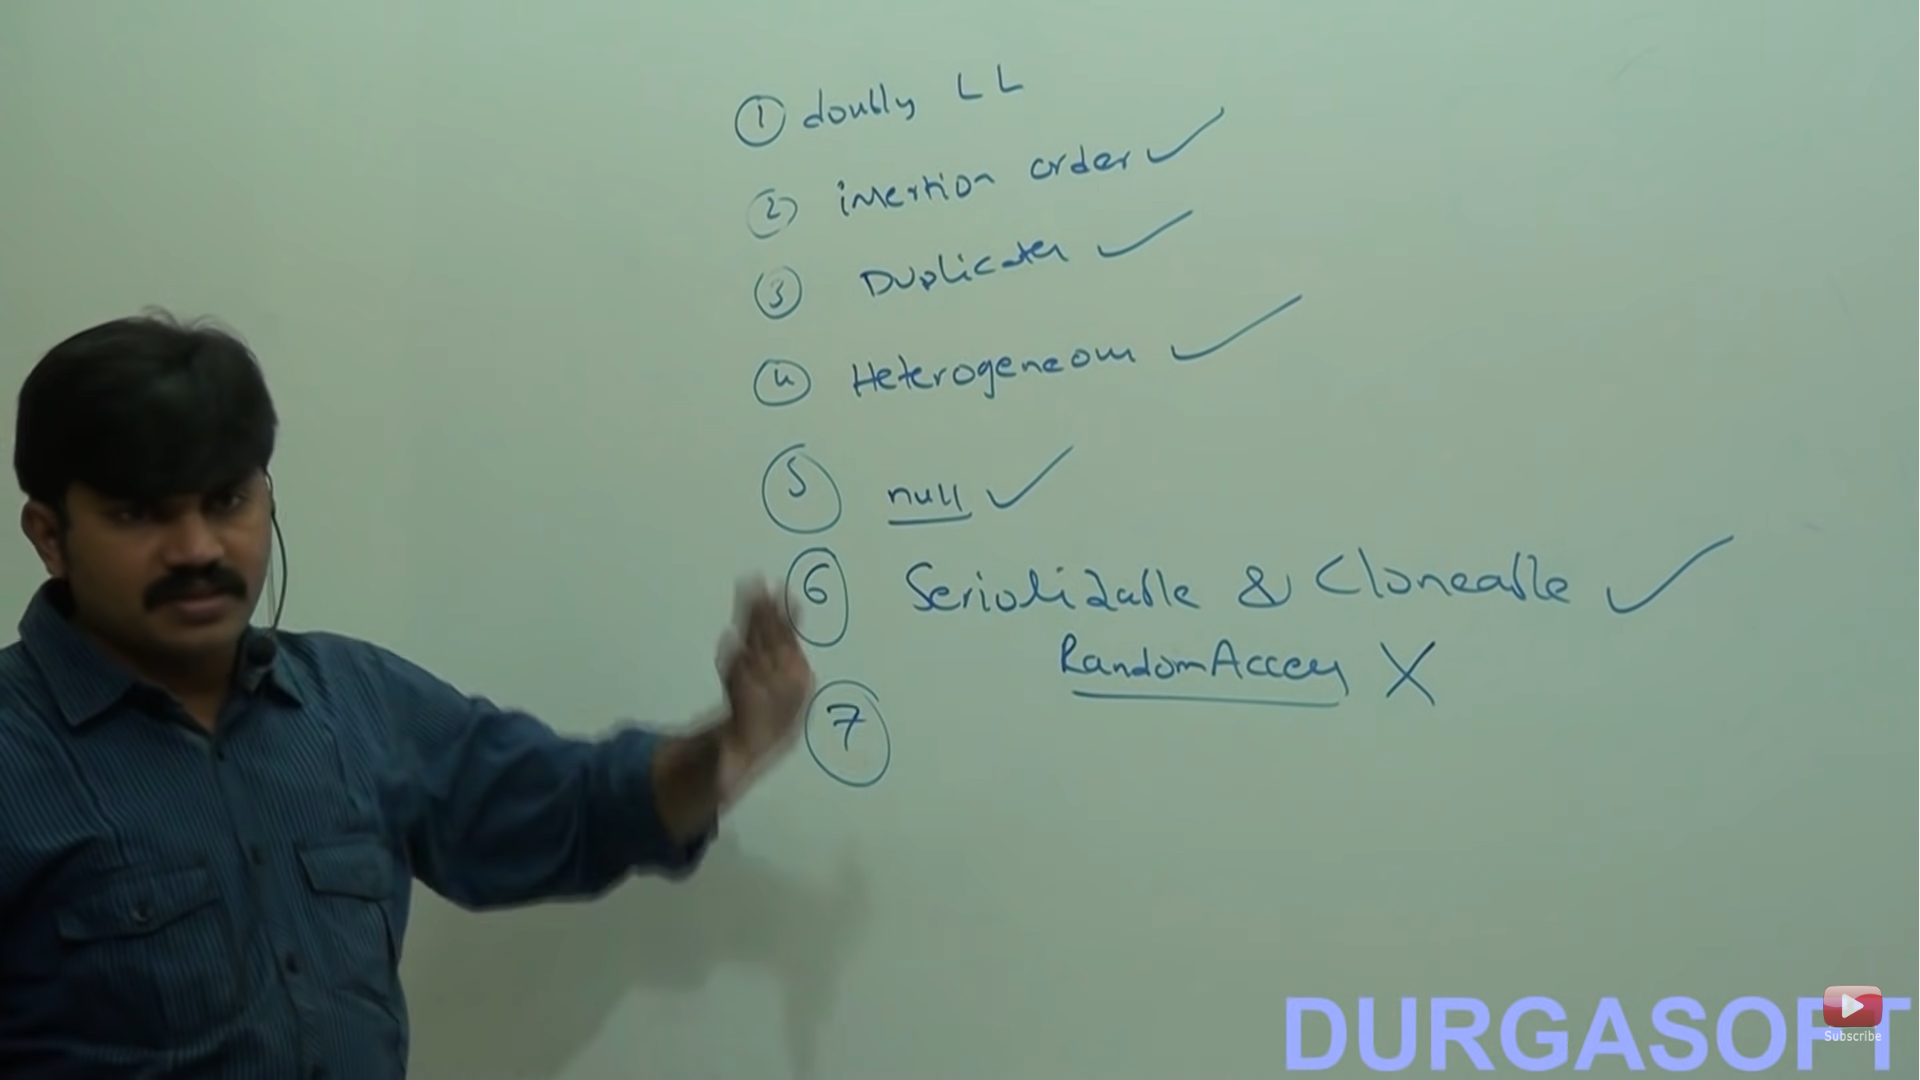 ① doubly LL
② insertion order ✓
③ Duplicates ✓
④ Heterogeneous ✓
⑤ null ✓
⑥ Serializable & Cloneable ✓
RandomAccess X
⑦
DURGASOFT
Subscribe